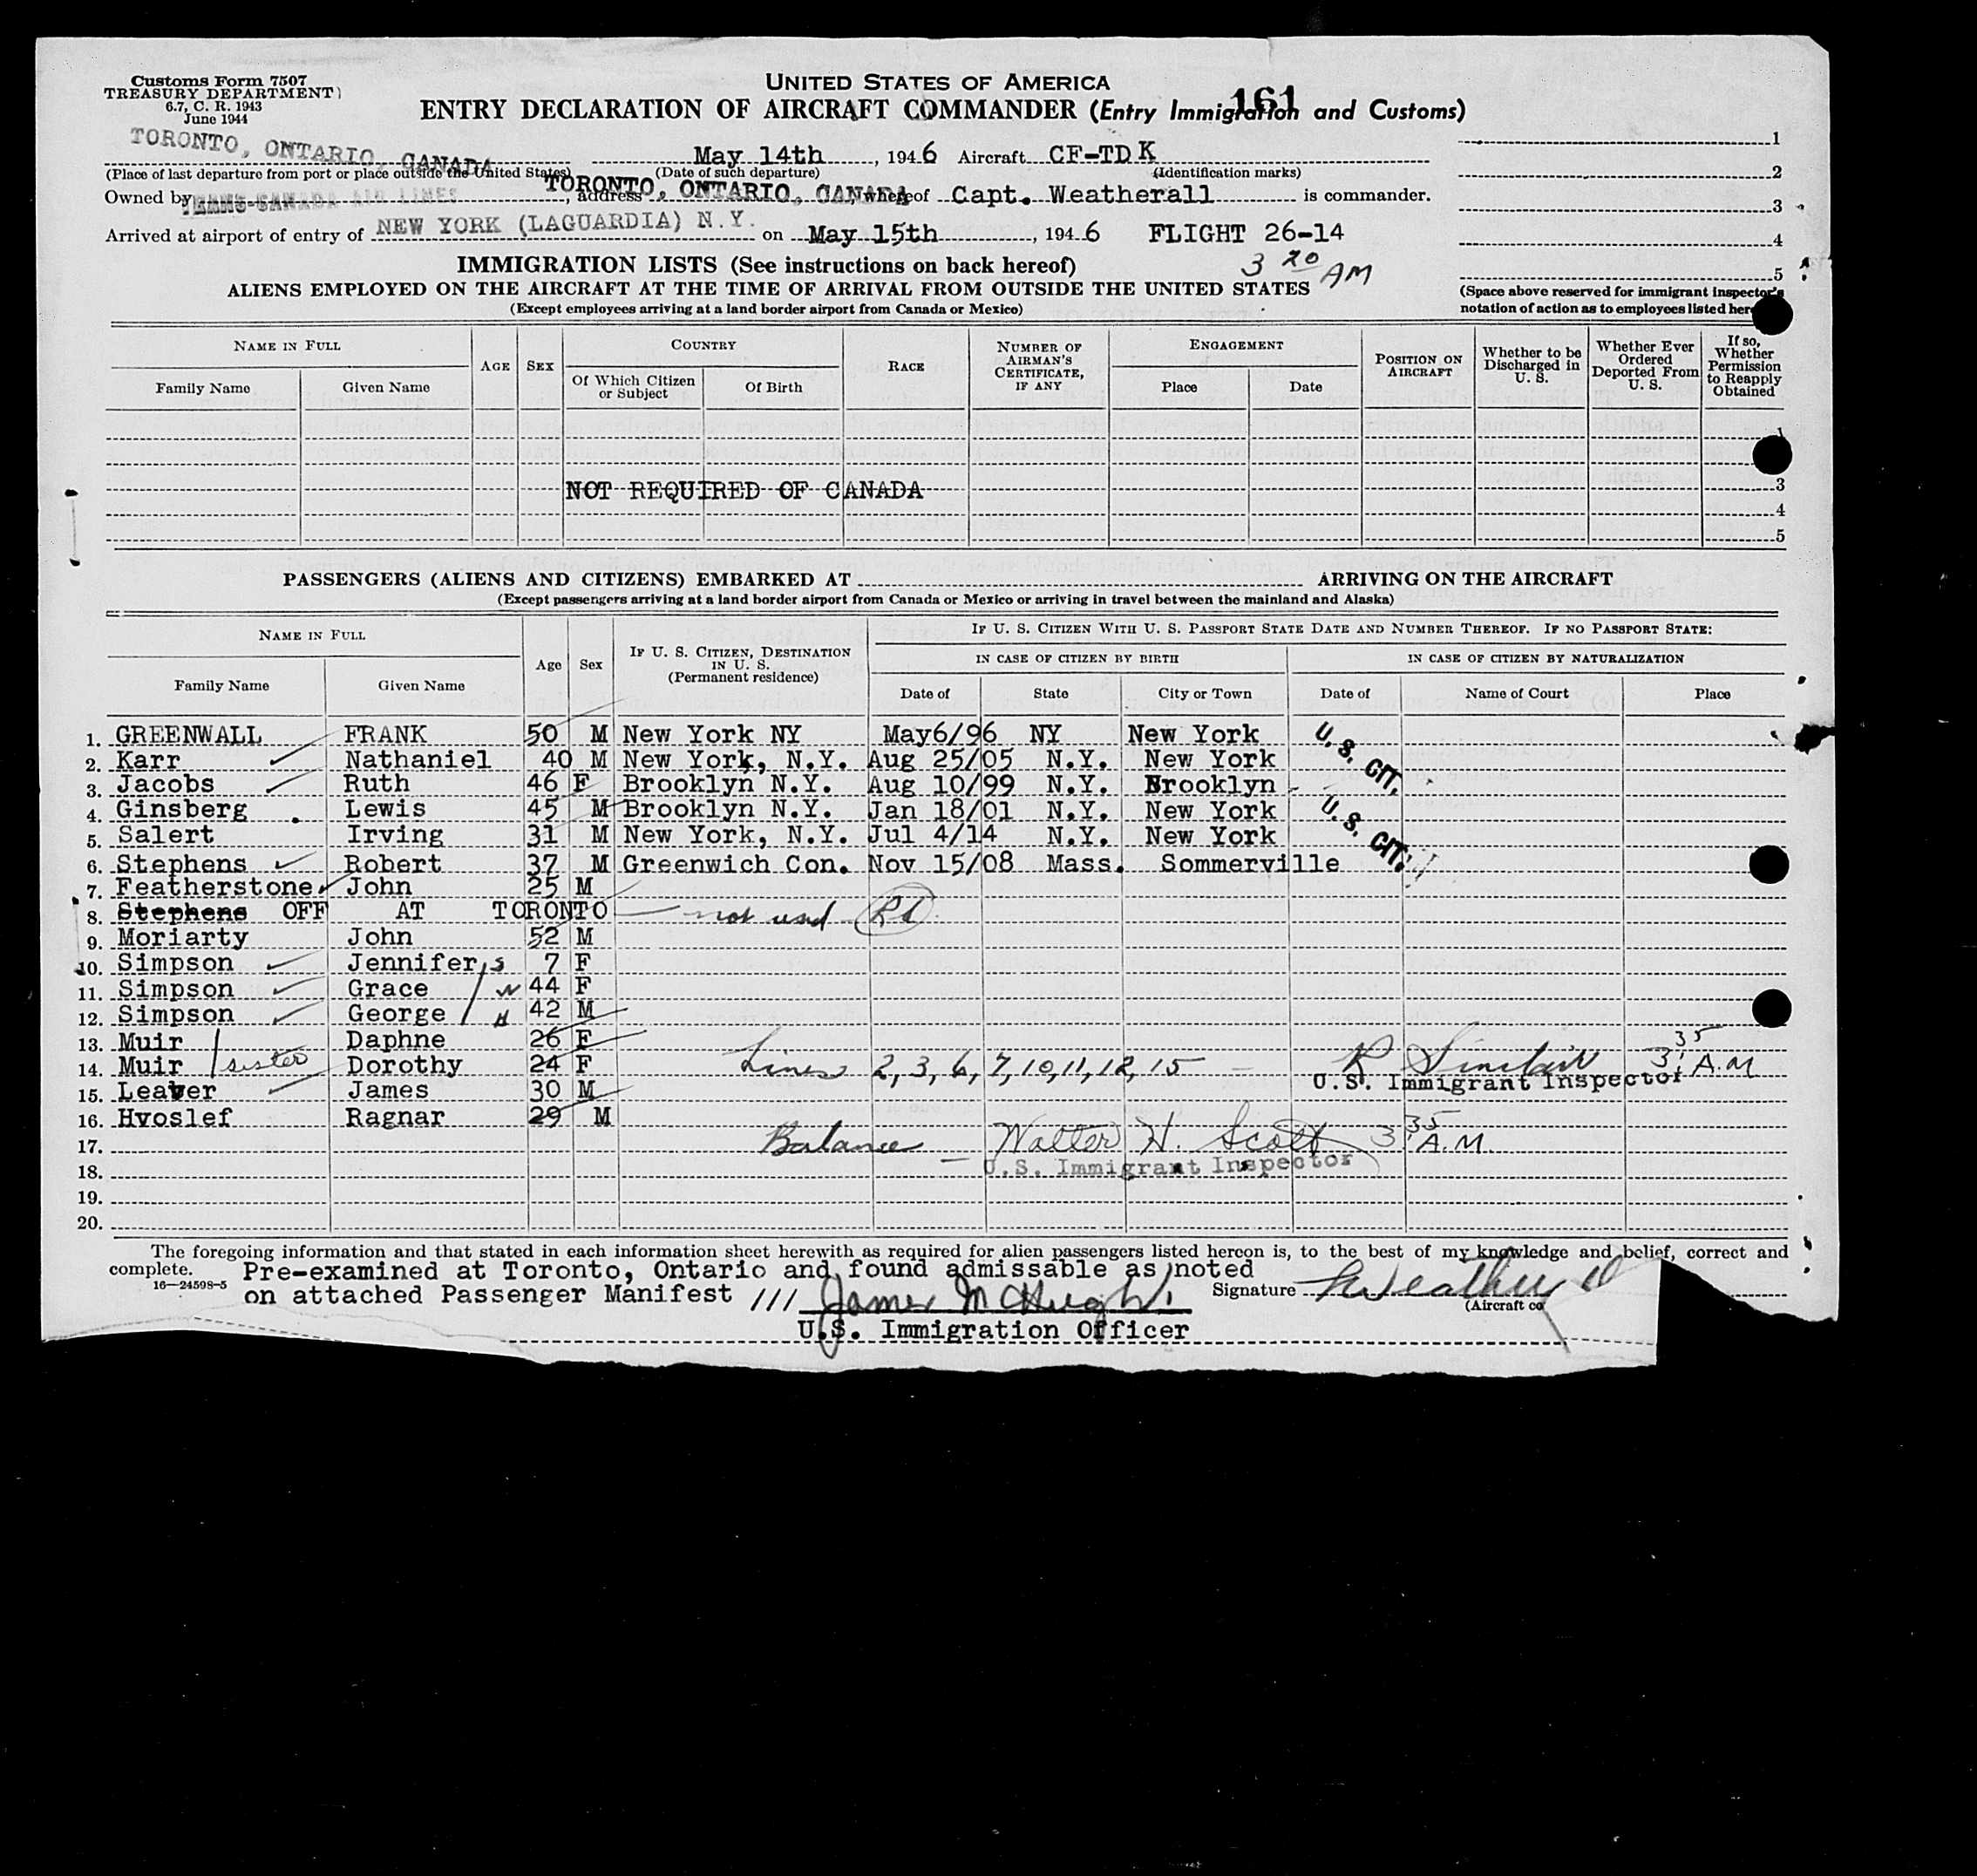 Customs Form 7507
TREASURY DEPARTMENT
6.7, C. R. 1943
June 1944
UNITED STATES OF AMERICA
161
ENTRY DECLARATION OF AIRCRAFT COMMANDER (Entry Immigration and Customs)
TORONTO, ONTARIO, CANADA May 14th, 1946 Aircraft CF-TDK
(Place of last departure from port or place outside the United States) (Date of such departure) (Identification marks)
Owned by TRANS-CANADA AIR LINES, address TORONTO, ONTARIO, CANADA whereof Capt. Weatherall is commander.
Arrived at airport of entry of NEW YORK (LAGUARDIA) N.Y. on May 15th, 1946 FLIGHT 26-14
3 20 AM
1
2
3
4
5
(Space above reserved for immigrant inspector's notation of action as to employees listed
IMMIGRATION LISTS (See instructions on back hereof)
ALIENS EMPLOYED ON THE AIRCRAFT AT THE TIME OF ARRIVAL FROM OUTSIDE THE UNITED STATES
(Except employees arriving at a land border airport from Canada or Mexico)
NAME IN FULL AGE SEX COUNTRY RACE NUMBER OF AIRMAN'S CERTIFICATE, IF ANY ENGAGEMENT POSITION ON AIRCRAFT Whether to be Discharged in U. S. Whether Ever Ordered Deported From U. S. If so, Whether Permission to Reapply Obtained
Family Name Given Name Of Which Citizen or Subject Of Birth Place Date
1
NOT REQUIRED OF CANADA 3
4
5
PASSENGERS (ALIENS AND CITIZENS) EMBARKED AT ARRIVING ON THE AIRCRAFT
(Except passengers arriving at a land border airport from Canada or Mexico or arriving in travel between the mainland and Alaska)
NAME IN FULL Age Sex IF U. S. CITIZEN, DESTINATION IN U. S. (Permanent residence) IF U. S. CITIZEN WITH U. S. PASSPORT STATE DATE AND NUMBER THEREOF. IF NO PASSPORT STATE:
IN CASE OF CITIZEN BY BIRTH IN CASE OF CITIZEN BY NATURALIZATION
Family Name Given Name Date of State City or Town Date of Name of Court Place
1. GREENWALL FRANK 50 M New York NY May6/96 NY New York
U.S. CIT.
2. Karr Nathaniel 40 M New York, N.Y. Aug 25/05 N.Y. New York
3. Jacobs Ruth 46 F Brooklyn N.Y. Aug 10/99 N.Y. Brooklyn
4. Ginsberg Lewis 45 M Brooklyn N.Y. Jan 18/01 N.Y. New York
U.S. CIT.
5. Salert Irving 31 M New York, N.Y. Jul 4/14 N.Y. New York
6. Stephens Robert 37 M Greenwich Con. Nov 15/08 Mass. Sommerville
7. Featherstone John 25 M
8. Stephens OFF AT TORONTO not used
9. Moriarty John 52 M
10. Simpson Jennifer s 7 F
11. Simpson Grace w 44 F
12. Simpson George H 42 M
13. Muir Daphne 26 F
14. Muir sister Dorothy 24 F Lines 2, 3, 6, 7, 10, 11, 12, 15 - R Sinclair 3:35 A.M
15. Leaver James 30 M U.S. Immigrant Inspector
16. Hvoslef Ragnar 29 M
17. Balance - Walter H. Scott 3:35 A.M.
18. U.S. Immigrant Inspector
19.
20.
The foregoing information and that stated in each information sheet herewith as required for alien passengers listed hereon is, to the best of my knowledge and belief, correct and
complete. Pre-examined at Toronto, Ontario and found admissable as noted
16—24598-5 on attached Passenger Manifest /// James McHugh Signature Weatherall
(Aircraft co
U.S. Immigration Officer